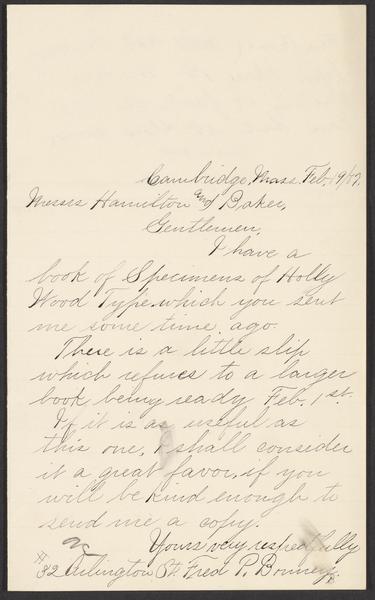 Cambridge, Mass. Feb. 19/87.
Messrs Hamilton and Baker,
Gentlemen,
I have a
book of Specimens of Holly
Wood Type which you sent
me some time ago.
There is a little slip
which refers to a larger
book being ready Feb. 1st.
If it is as useful as
this one, I shall consider
it a great favor, if you
will be kind enough to
send me a copy.
Yours very respectfully
32 Arlington St. Fred P.